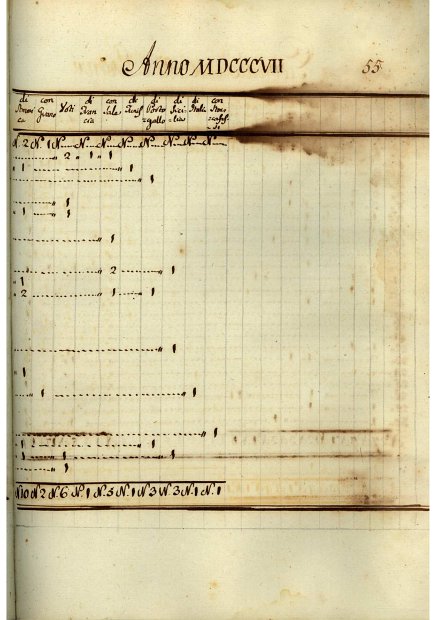 Anno MDCCCVII 55
di con di con di di di di con
Grano Voti Fran Sale Porto Sici Stoc
ca cia gallo lia
N. 2 N. 1 N. N. N. N. N. N. N. N.
2 1 1
1 1
1
1
1 1
1
2 1
1
2 1 1
1
1
1 1
1
1 1
1 1 1
1
N. 10 N. 2 N. 6 N. 1 N. 5 N. 1 N. 3 N. 3 N. 1 N. 1